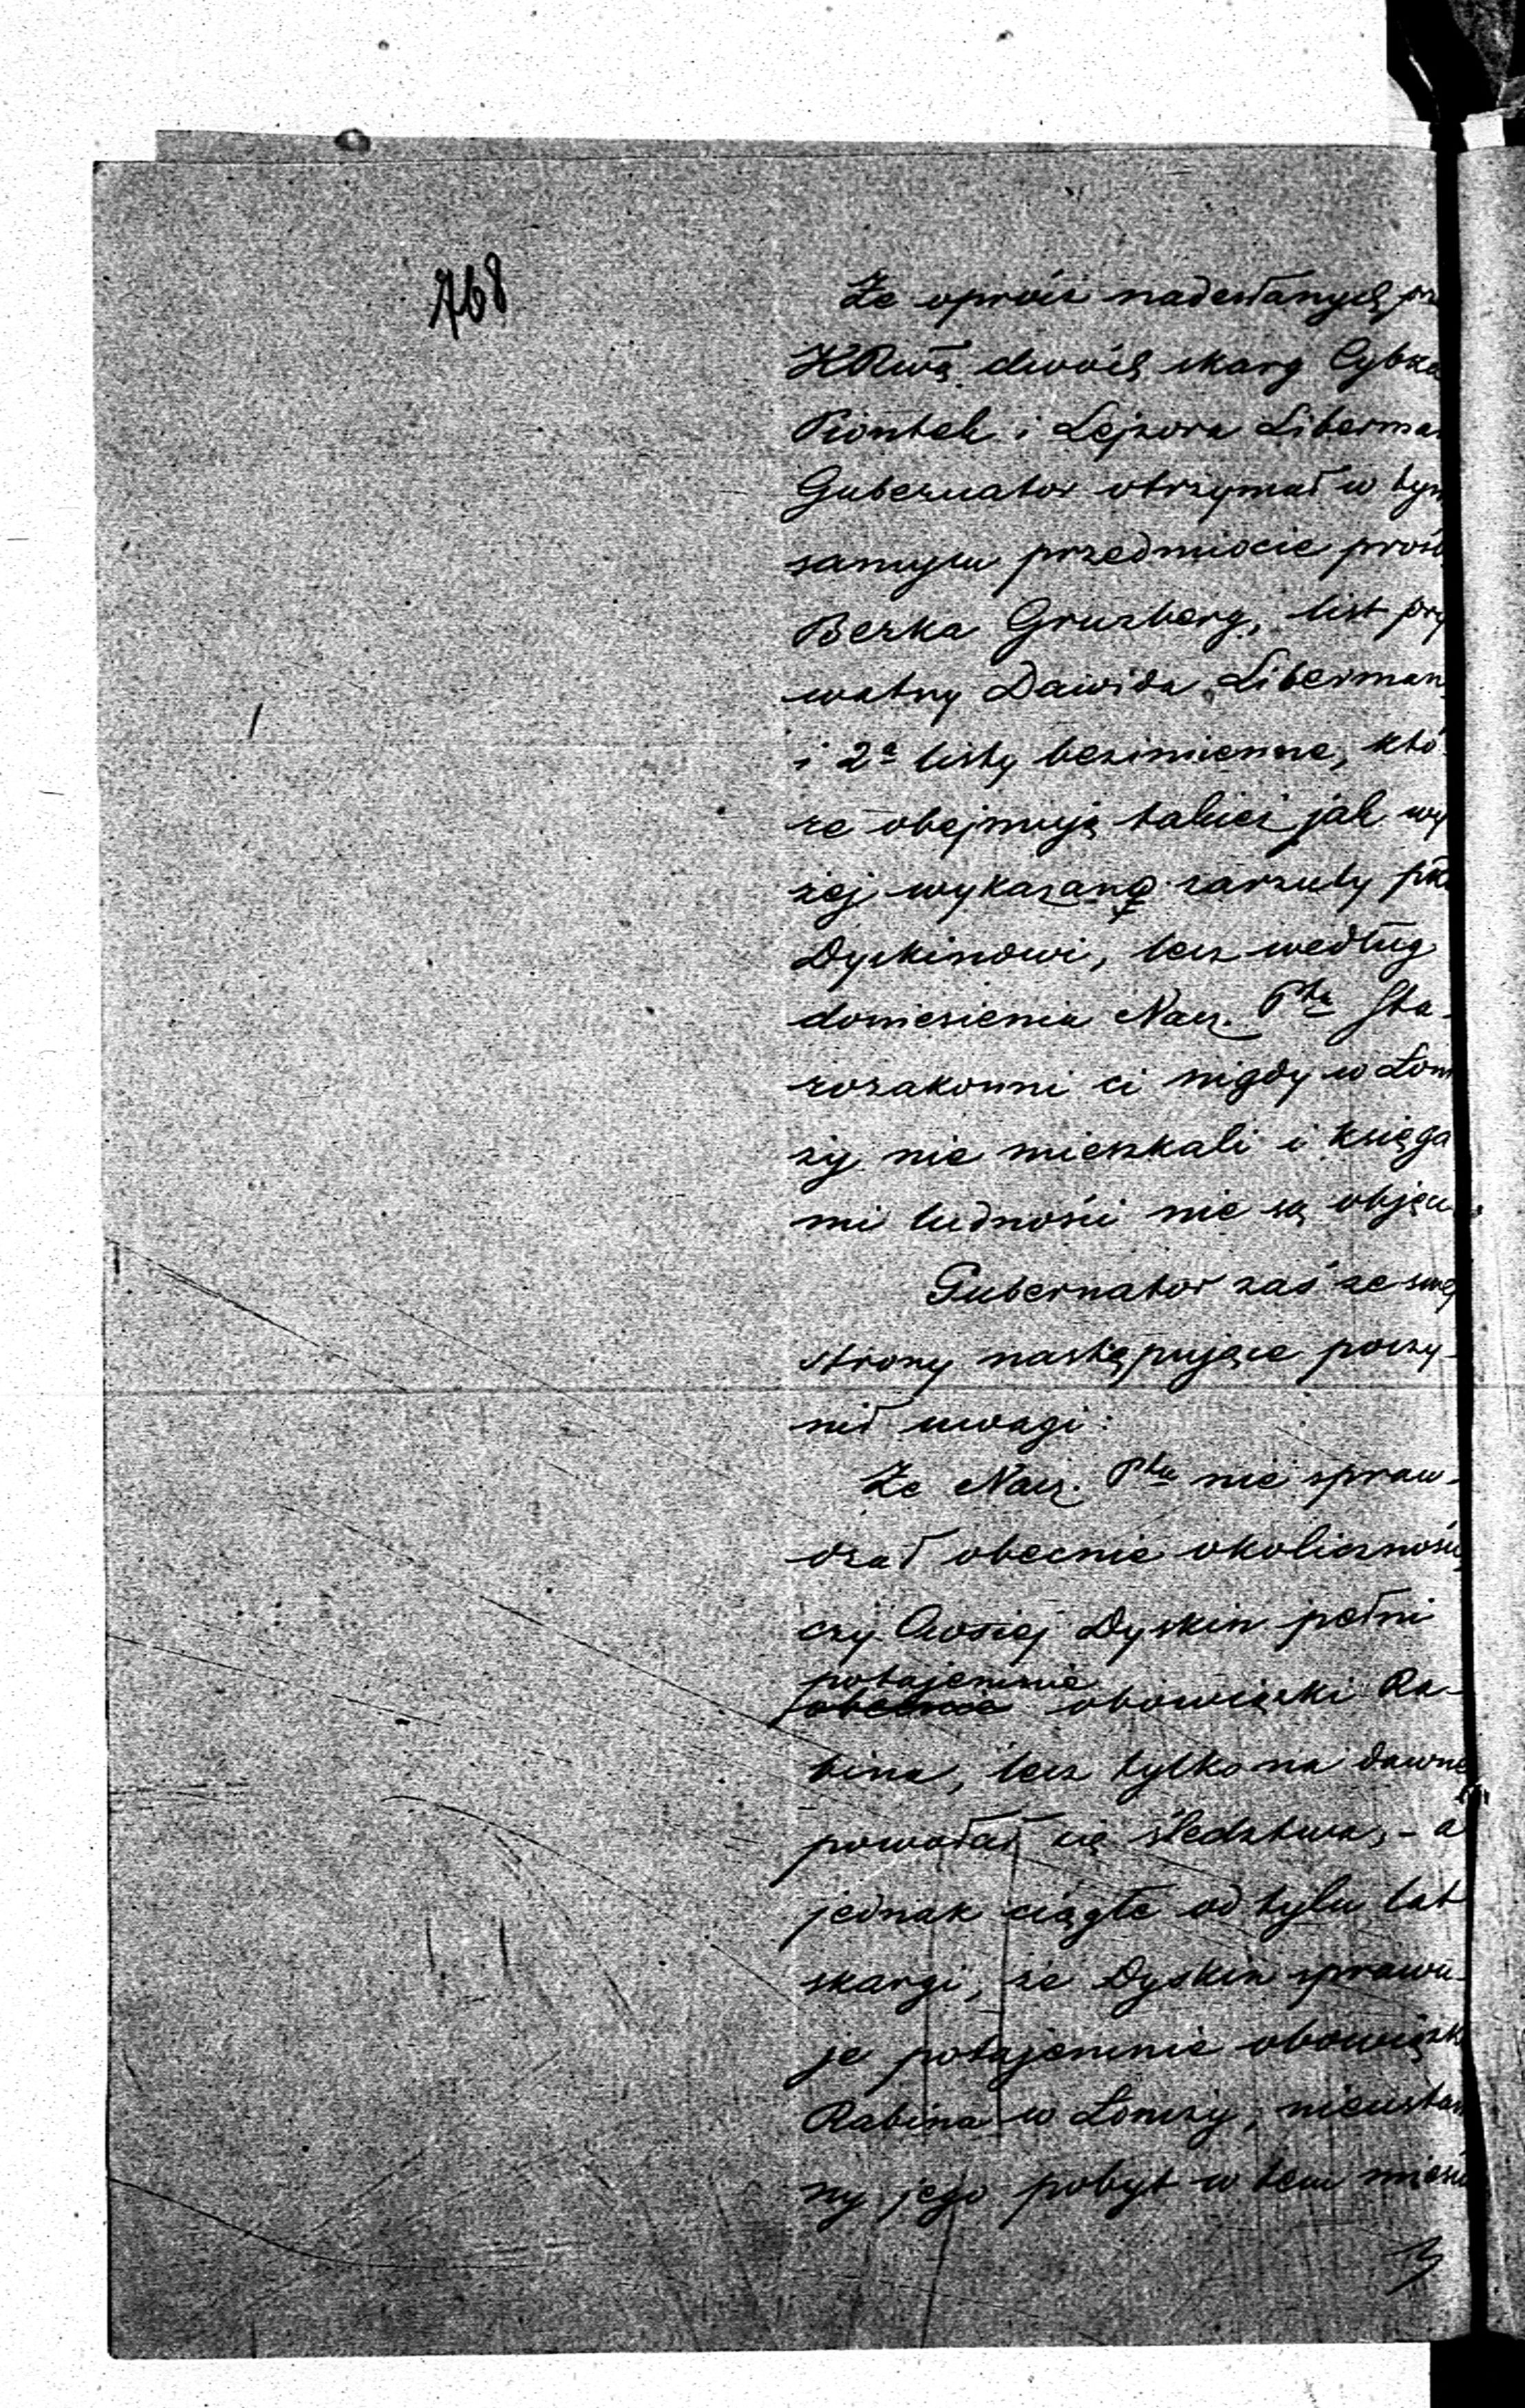 768
Że oprócz nadesłanych prz
KRwą dwóch skarg Cybka
Piontek i Lejzora Liberma
Gubernator otrzymał w tym
samym przedmiocie prośb
Berka Gruzberg, list pry
watny Dawida Liberman
i 2a listy bezimienne, któ-
re obejmują takież jak wy
żej wykazane zarzuty pko
Dyskinowi, lecz według
doniesienia Nacz. Ptu Sta-
rozakonni ci nigdy w Łom
ży nie mieszkali i księga
mi ludności nie są objęci.
Gubernator zaś ze swej
strony następujące poczy-
nił uwagi:
Że Nacz. Ptu nie spraw-
dzał obecnie okoliczności
czy Owsiej Dyskin pełni
potajemnie
obecnie obowiązki Ra-
bina, lecz tylko na dawne
powołał się śledztwa, - a
jednak ciągłe od tylu lat
skargi, że Dyskin sprawu-
je potajemnie obowiązk
Rabina w Łomży, nieustan
ny jego pobyt w tem mieści